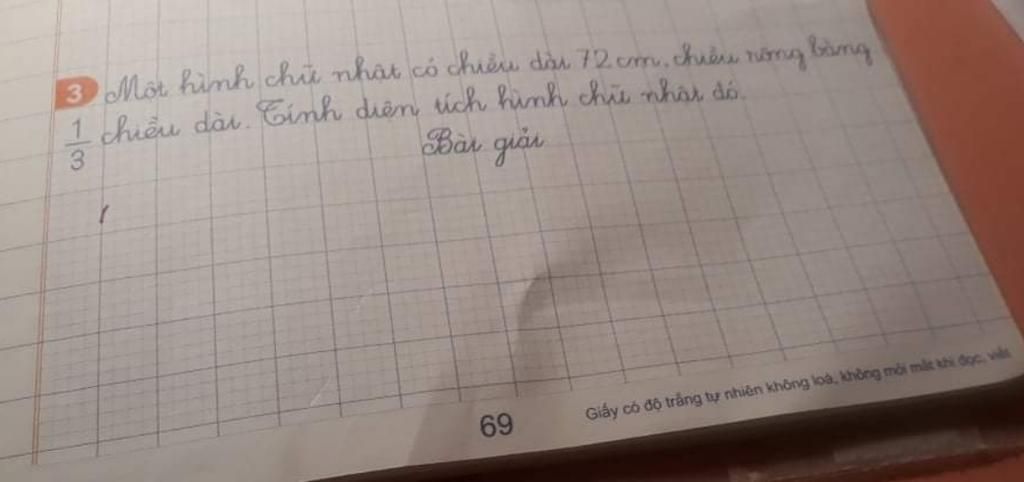 3 Một hình chữ nhật có chiều dài 72 cm, chiều rộng bằng
1/3 chiều dài. Tính diện tích hình chữ nhật đó.
Bài giải
69
Giấy có độ trắng tự nhiên không loá, không mỏi mắt khi đọc, viết